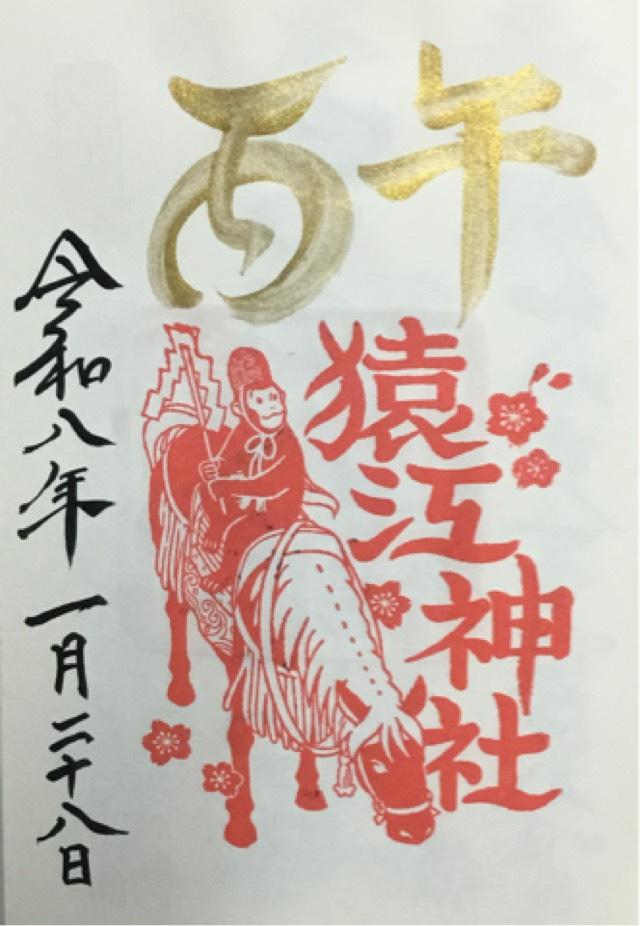 丙午
猿江神社
令和八年一月二十八日